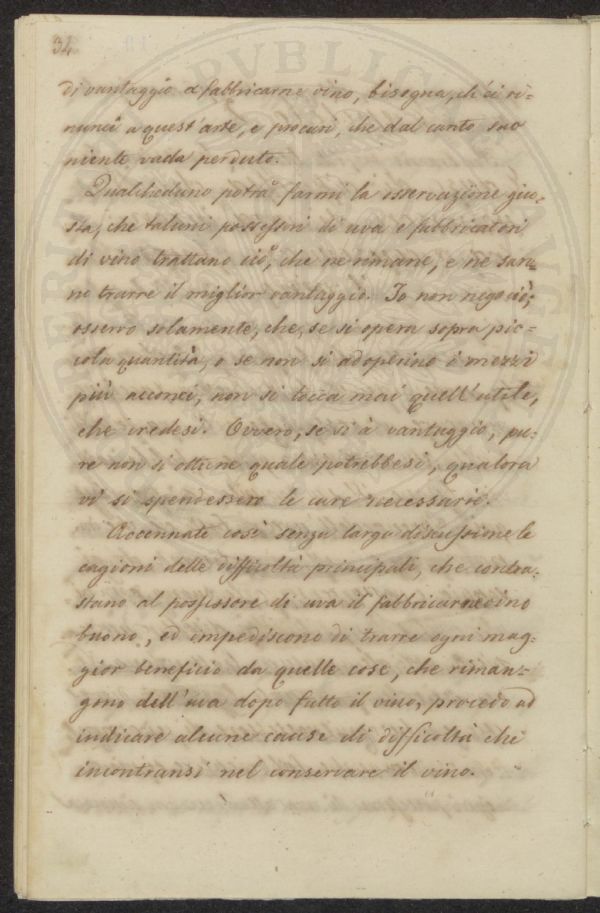 34
di vantaggio a fabbricarne vino, bisogna, ch'ei ri=
nunci a quest'arte, e procuri, che dal canto suo
niente vada perduto.
Qualcheduno potrà farmi la osservazione giu=
sta, che talumi possessori di uva e fabbricatori
di vino trattano ciò, che ne rimane, e ne san=
no trarre il miglior vantaggio. Io non nego ciò;
osservo solamente, che, se si opera sopra pic=
cola quantità, o se non si adoperino i mezzi
più acconci, non si tocca mai quell'utile,
che credesi. Ovvero, se si à vantaggio, pu=
re non si ottiene quale potrebbesi, qualora
vi si spendessero le cure necessarie.
Accennate così senza larga discussione le
cagioni delle difficoltà principali, che contra=
stano al possessore di uva il fabbricarne vino
buono, ed impediscono di trarre ogni mag=
gior beneficio da quelle cose, che riman=
gono dell'uva dopo fatto il vino, procedo ad
indicare alcune cause di difficoltà che
incontransi nel conservare il vino.